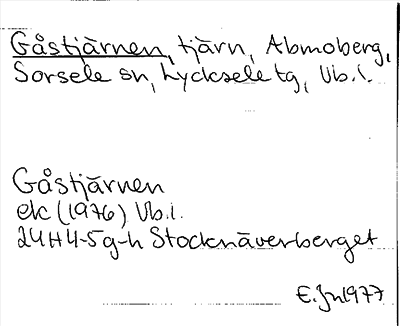 Gåstjärnen, tjärn, Abmoberg,
Sorsele sn, Lycksele tg, Vb.l.
Gåstjärnen
ek (1976) Vb.l.
24H4-5g-h Stocknäverberget
E.Jn1977